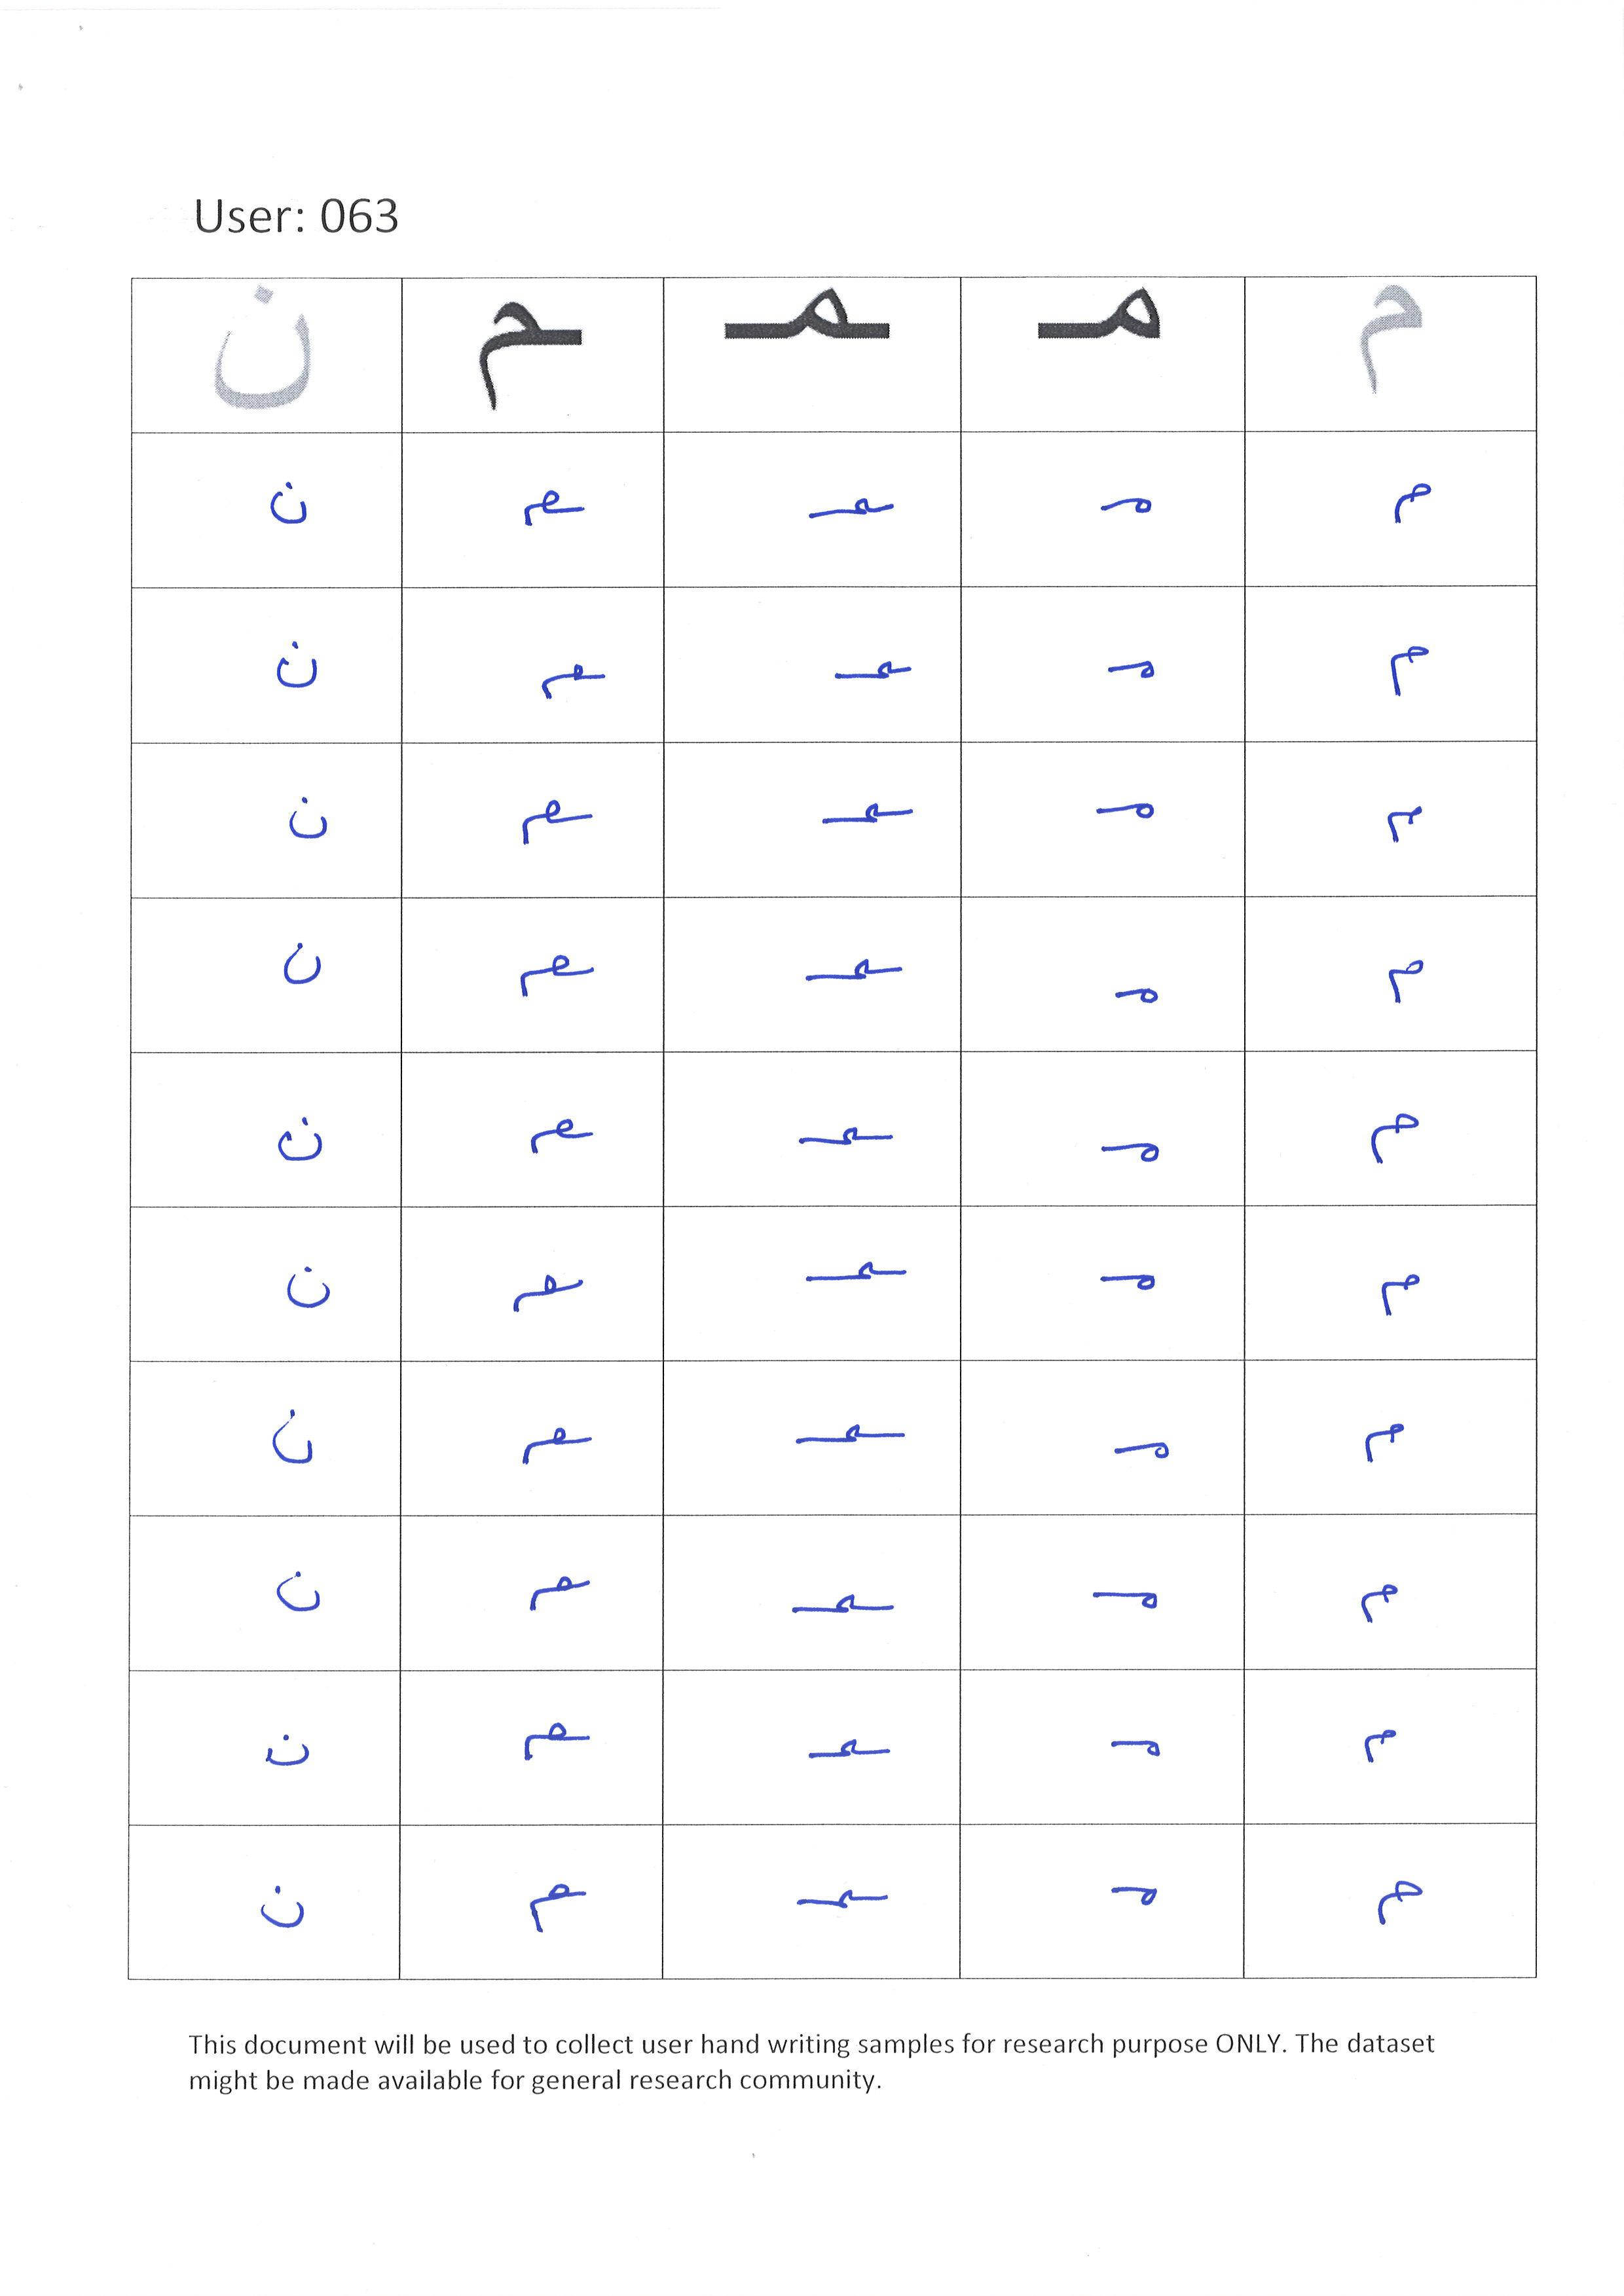 User: 063
م مـ ـمـ ـم ن
م مـ ـمـ ـم ن
م مـ ـمـ ـم ن
م مـ ـمـ ـم ن
م مـ ـمـ ـم ن
م مـ ـمـ ـم ن
م مـ ـمـ ـم ن
م مـ ـمـ ـم ن
م مـ ـمـ ـم ن
م مـ ـمـ ـم ن
م مـ ـمـ ـم ن
This document will be used to collect user hand writing samples for research purpose ONLY. The dataset
might be made available for general research community.